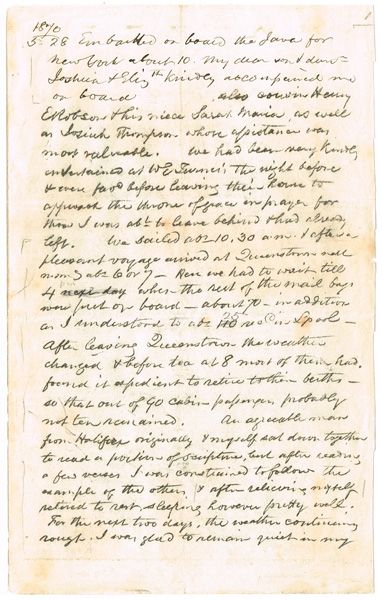 1870
5 28 Embarked on board the Java for
New York about 10. My dear son & daur
Joshua & Elizth kindly accompanied me
on board also cousin Henry
E Robson & his niece Sarah Maria, as well
as Josiah Thompson whose assistance was
most valuable. We had been very kindly
entertained at W E Turner's the night before
& were favd before leaving their house to
approach the throne of grace in prayer for
those I was abt to leave behind & had already
left. We sailed abt 10.30 a.m. & after a
pleasant voyage arrived at Queenstown next
morng abt 6 or 7 - Here we had to wait till
4 next day when the rest of the mail bags
were put on board - about 70 - in addition
as I understood to abt 25 recd in Lpool -
After leaving Queenstown the weather
changed & before tea at 8 most of them had
found it expedient to retire to their berths -
so that out of 90 cabin passengers, probably
not ten remained. An agreeable man
from Halifax originally & myself sat down together
to read a portion of scripture, but after reading
a few verses I was constrained to follow the
example of the others, & after relieving myself
retired to rest, sleeping however pretty well.
For the next two days, the weather continuing
rough. I was glad to remain quiet in my